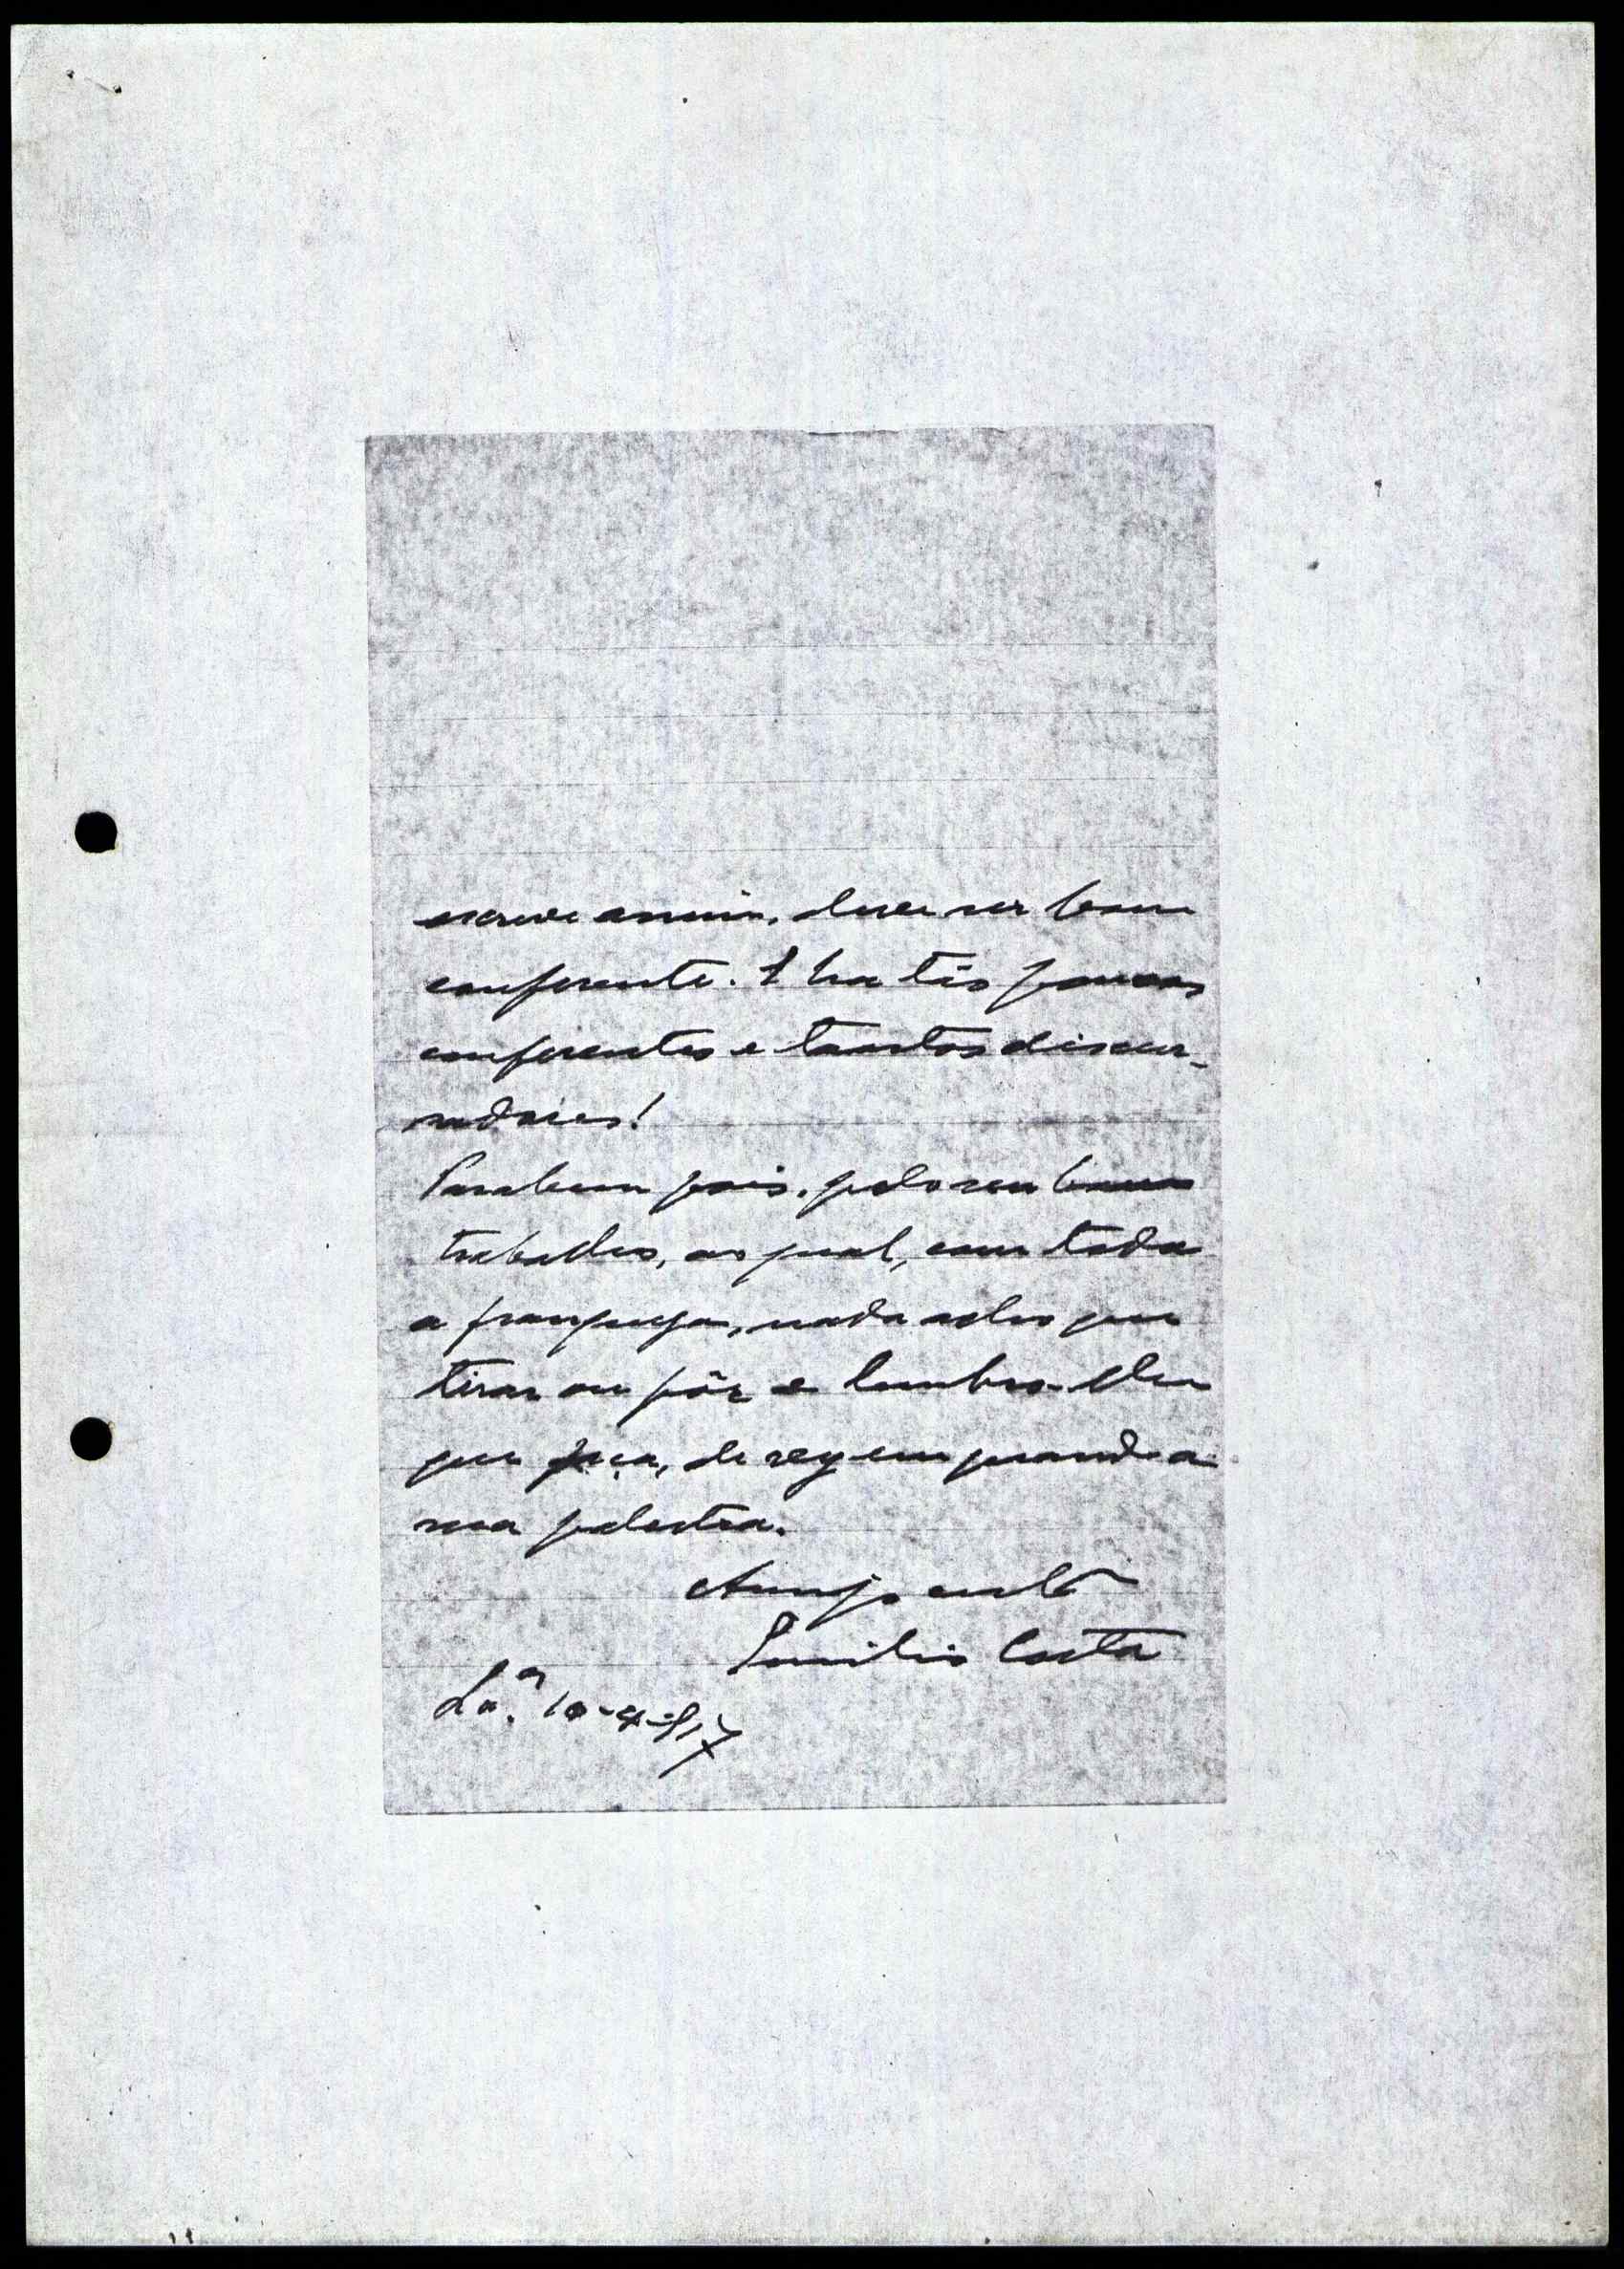 escreve assim, deve ser bom
conferente. E ha tão poucos
conferentes e tantos discur-
sadores!
Parabens pois, pelo seu bom
trabalho, ao qual, com toda
a franqueza, nada acho que
tirar ou pôr e lembro-lhe
que faça, de vez em quando a
sua palestra.
Amgo
Emilio Costa
Lx.ª 10-4-917